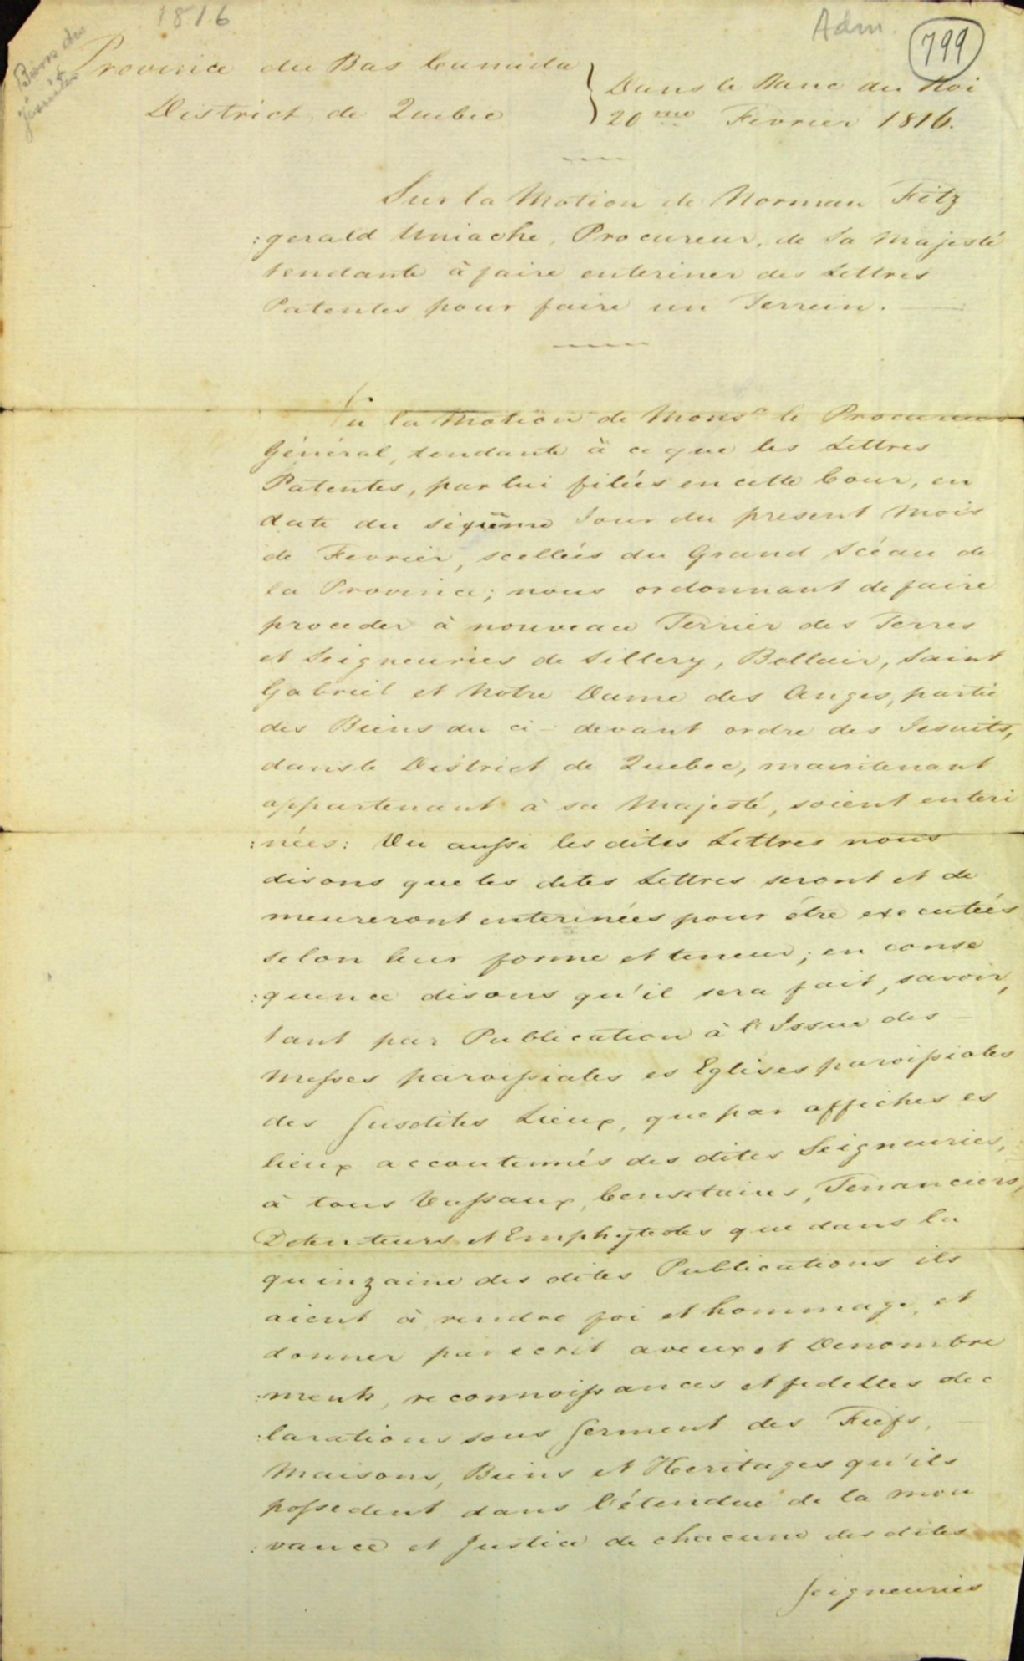 1816
Adm
799
Biens des
Jésuites
Province du Bas Canada
District de Quebec
Dans le Banc du Roi
20 me Fevrier 1816.
Sur la Motion de Norman Fitz
:gerald Uniacke, Procureur, de Sa Majesté
tendante à faire enteriner des Lettres
Patentes pour faire un Terrein.
Vu la Motion de Monsr le Procureur
Général, tendante à ce que les Lettres
Patentes, par lui filées en cette Cour, en
date du sixiéme Jour du present Mois
de Fevrier, scellées du Grand Scéau de
la Province; nous ordonnant de faire
proceder à nouveau Terrier des Terres
et Seigneuries de Sillery, Bellair, Saint
Gabriel et Notre Dame des Anges, partie
des Biens du ci-devant ordre des Jesuits,
dans le District de Quebec, maintenant
appartenant à sa Majesté, soient enteri
:nées: Vu aussi les dites Lettres nous
disons que les dites Lettres seront et de
meureront enterinées pour étre executées
selon leur forme et teneur; en conse
:quence disons qu'il sera fait, savoir,
tant par Publication à l'Issue des
Messes paroissiales es Eglises paroissiales
des Susdites Lieux, que par affiches es
lieux accoutumés des dites Seigneuries,
à tous Vassaux, Censitaires, Tenanciers,
Detenteurs et Emphyteotes que dans la
quinzaine des dites Publications ils
aient à rendre foi et hommage, et
donner par ecrit aveux et Denombre
:ments, reconnoissances et fidelles dec
:larations sous Serment des Fiefs,
Maisons, Biens et Heritages qu'ils
possedent dans l'étendue de la mou
:vance et Justice de chacune des dites
Seigneuries